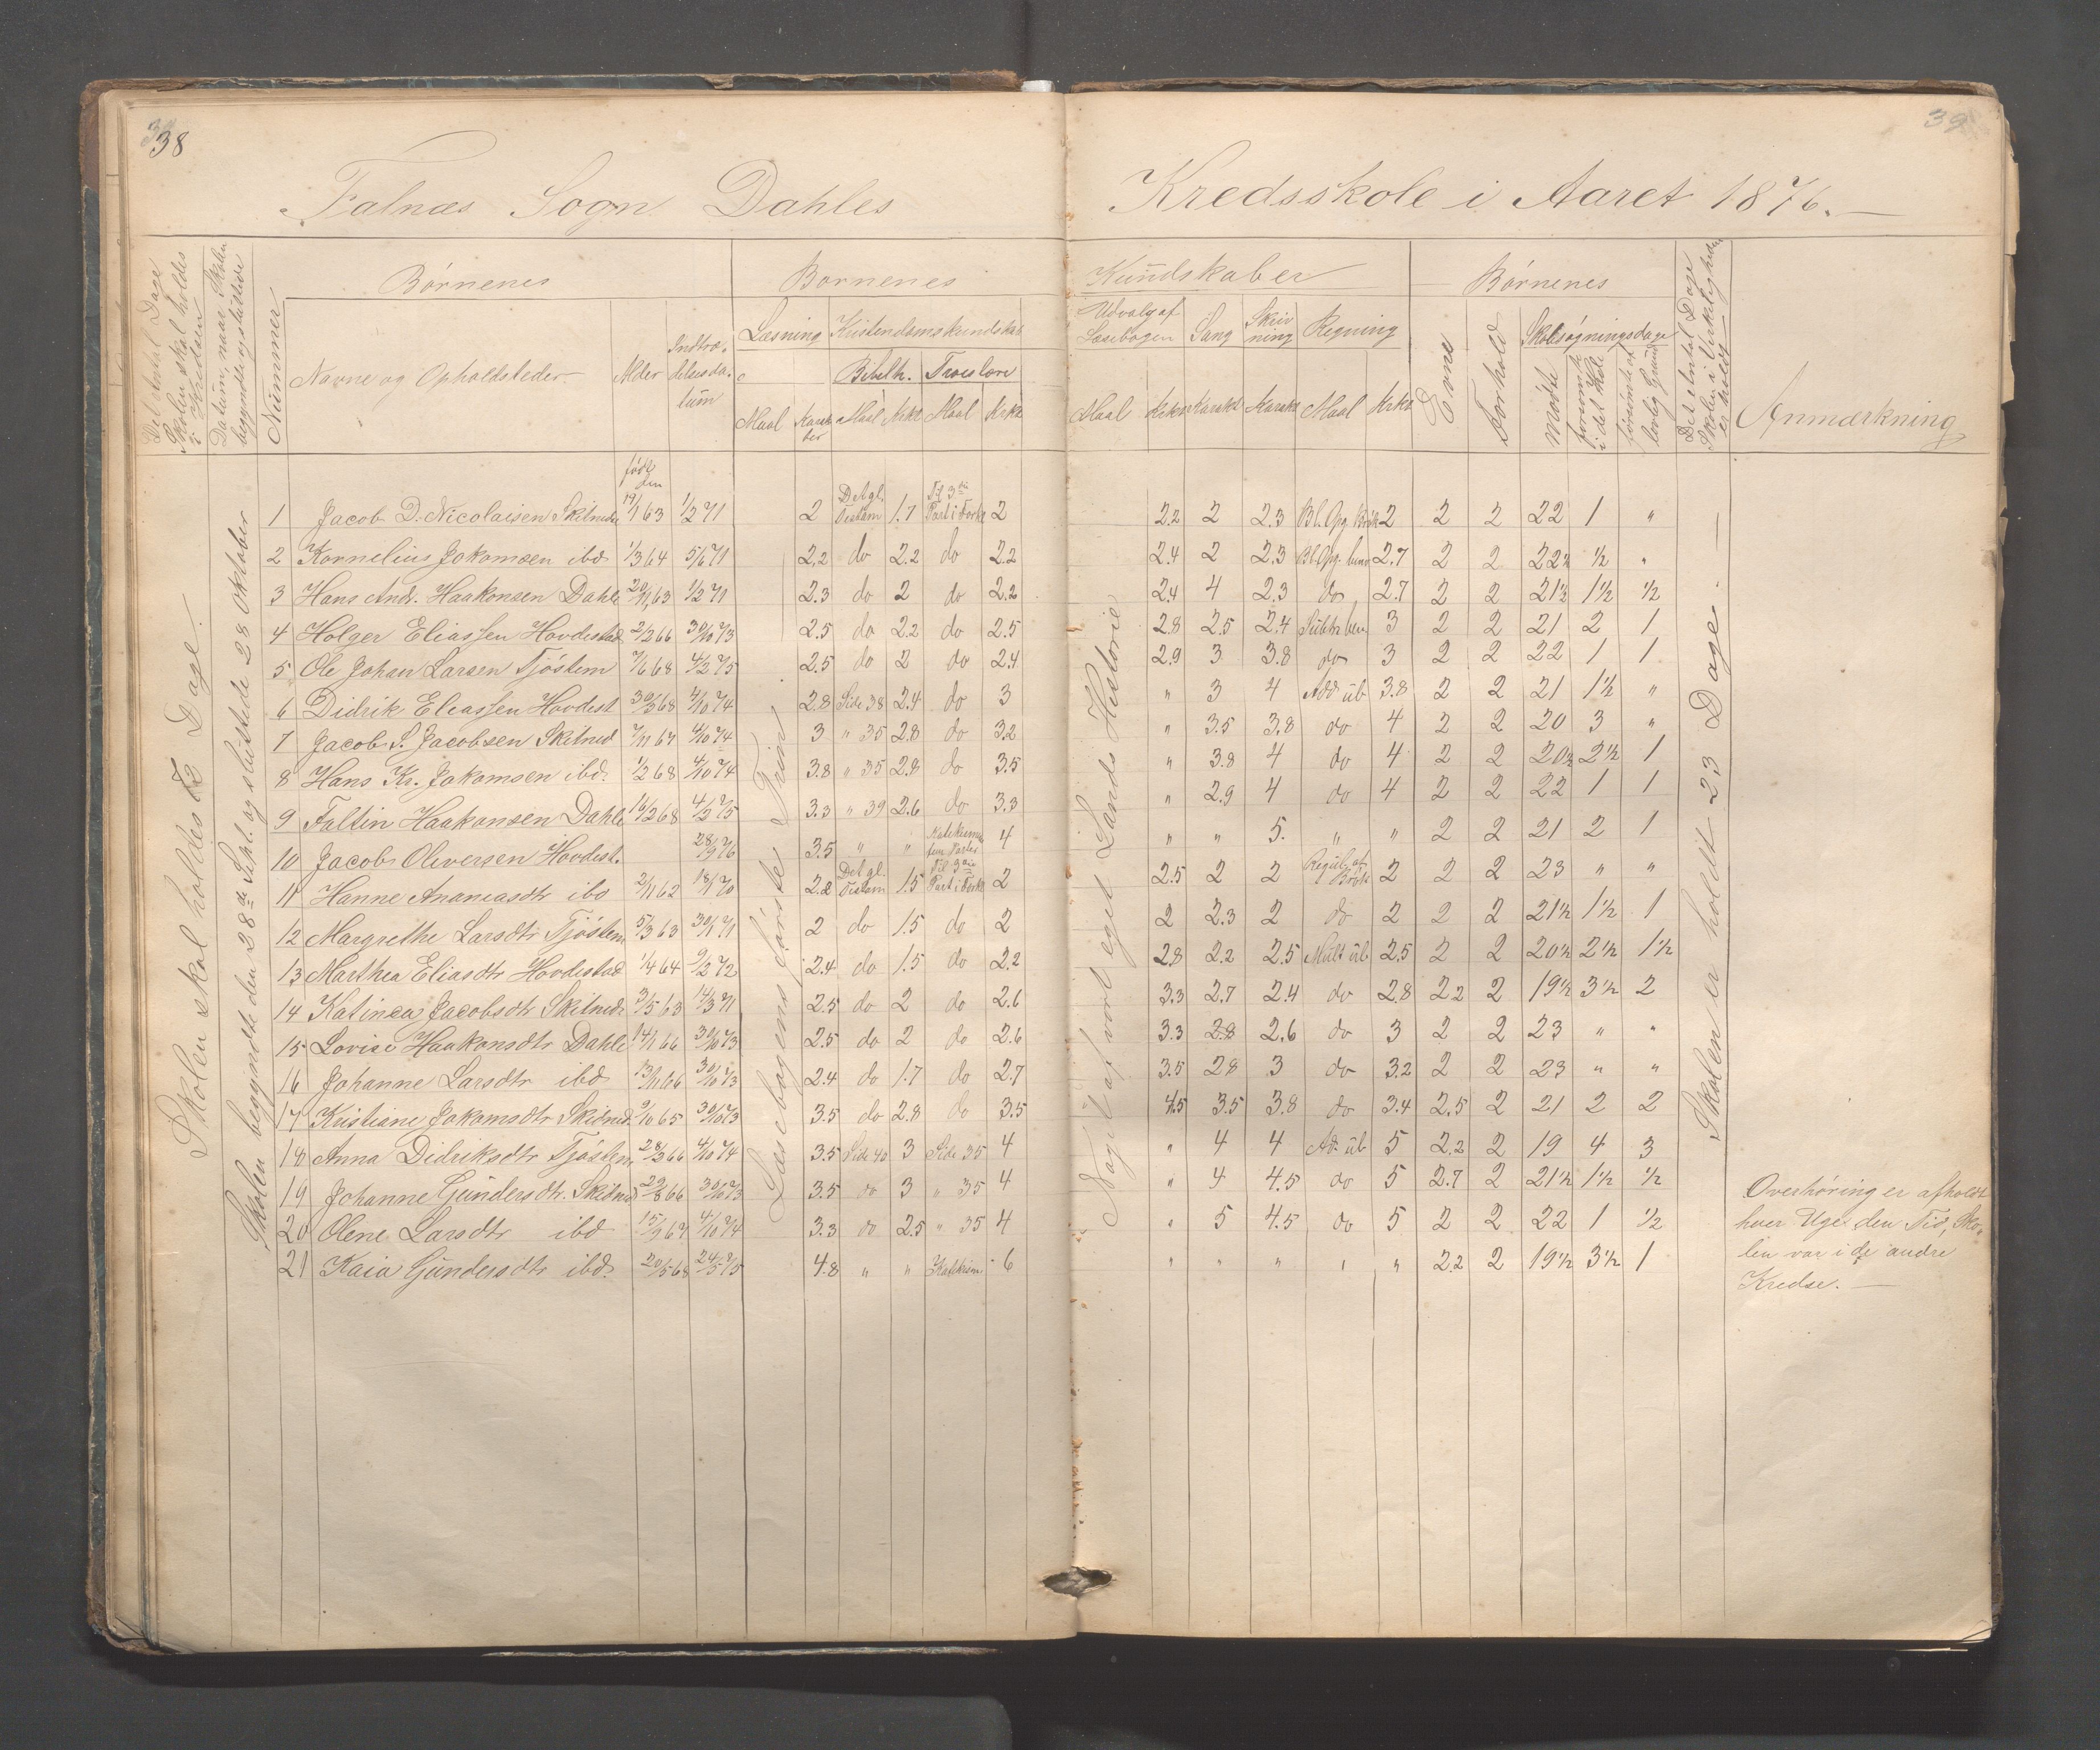 38
Falnæs Sogn Dahles
Det Antal Dage Skolen skal holdes i Kredsen
Datum, naar Skolen begyndte og sluttede
Nummer
Børnenes
Børnenes
Navne og Opholdsteder
Alder
Indtrædelsesdatum
Læsning
Kristendomskundskab
Bibelh.
Troeslære
Maal
Maal
Krkt
Maal
Krkt
Skolen skal holdes 72 Dage.
Skolen begyndte den 28de Sept. og sluttede 28 Oktober
Læsebogens første Trin
født den
1 Jacob D. Nicolaisen Skitnedr 19/1 63 1/2 71 2 Det gl. Testam 1.7 Til 3die Part i Forkl 2
2 Kornelius Jokomsen ibd 1/3 64 5/6 71 2.2 do 2.2 do 2.2
3 Hans Andr. Haakonsen Dahle 20/11 63 1/2 71 2.3 do 2 do 2.2
4 Holger Eliassen Hovdestad 2/2 66 30/10 73 2.5 do 2.2 do 2.5
5 Ole Johan Larsen Tjöstem 7/6 68 4/2 75 2.5 do 2 do 2.4
6 Didrik Eliassen Hovdest 30/3 68 4/10 74 2.8 Side 38 2.4 do 3
7 Jacob S. Jacobsen Skitned 7/11 67 4/10 74 3 " 35 2.8 do 3.2
8 Hans Kr. Jokomsen ibd. 1/2 68 4/10 74 3.8 " 35 2.8 do 3.5
9 Faltin Haakonsen Dahle 16/2 68 4/2 75 3.3 " 39 2.6 do 3.3
10 Jacob Oliversen Hovdest. 28/9 76 3.5 " " 4
11 Hanne Ananiasdtr ibd 2/11 62 18/1 70 2.2 Det gl. Testam 1.5 Til 3die Part i Forkl 2
12 Margrethe Larsdtr Tjöstem 5/3 63 30/1 71 2 do 1.5 do 2
13 Marthea Eliasdtr Hovdestad 1/4 64 9/2 72 2.4 do 1.5 do 2.2
14 Katinca Jacobsdtr Skitnedr 3/5 63 14/3 71 2.5 do 2 do 2.6
15 Lovise Haakonsdtr Dahle 14/1 66 30/10 73 2.5 do 2 do 2.6
16 Johanne Larsdtr ibd 13/11 66 30/10 73 2.4 do 1.7 do 2.7
17 Kristiane Jokomsdtr Skidned 9/10 65 30/10 73 3.5 do 2.8 do 3.5
18 Anna Didriksdtr Tjöstem 28/3 66 4/10 74 3.5 Side 40 3 Side 35 4
19 Johanne Gundersdtr. Skidned 29/8 66 30/10 73 3.5 do 3 " 35 4
20 Olene Larsdtr ibd 15/9 67 4/10 74 3.3 do 2.5 " 35 4
21 Kaia Gundersdtr ibd. 20/5 68 24/5 75 4.8 " " Katekism 6
39
Kredsskole i Aaret 1876.
Kundskaber
Børnenes
Udvalg af Læsebogen
Sang
Skrivning
Regning
Evne
Forhold
Skolesøgningsdage
Maal
Karakt
Karakt
Maal
Krkt
mødte
forsømte i det Hele
forsømte af lovlig Grund
Det Antal Dage Skolen i Virkeligheden er holdt
Anmærkning
Noget af vort eget Lands Historie
Skolen er holdt 23 Dage.
2.2 2 2.3 Bl. Opg. Brøk 2 2 2 22 1 "
2.4 2 2.3 2.7 2 2 22½ ½ "
2.4 4 2.3 do 2.7 2 2 21½ 1½ ½
2.8 2.5 2.4 3 2 2 21 2 1
2.9 3 3.8 do 3 2 2 22 1 1
" 3 4 Add ub 3.8 2 2 21 1½ "
" 3.5 3.8 do 4 2 2 20 3 "
" 3.8 4 do 4 2 2 20½ 2½ 1
" 2.9 4 do 4 2 2 22 1 1
" " 5. " " 2 2 21 2 1
2.5 2 2 Regul. af Brøk 2 2 2 23 " "
2 2.3 2 do 2 2 2 21½ 1½ 1
2.8 2.2 2.5 Mult ub 2.5 2 2 20½ 2½ 1½
3.3 2.7 2.4 do 2.8 2.2 2 19½ 3½ 2
3.3 2.8 2.6 do 3 2 2 23 " "
3.5 2.8 3 do 3.2 2 2 23 " "
4.5 3.5 3.8 do 3.4 2.5 2 21 2 2
" 4 4 Ad ub 5 2.2 2 19 4 3
" 4 4.5 do 5 2.7 2 21½ 1½ ½
" 5 4.5 do 5 2 2 22 1 ½
" " " " " 2.2 2 19½ 3½ 1
Overhøring er afholdt
hver Uge den Tid, Sko-
len var i de andre
Kredse.